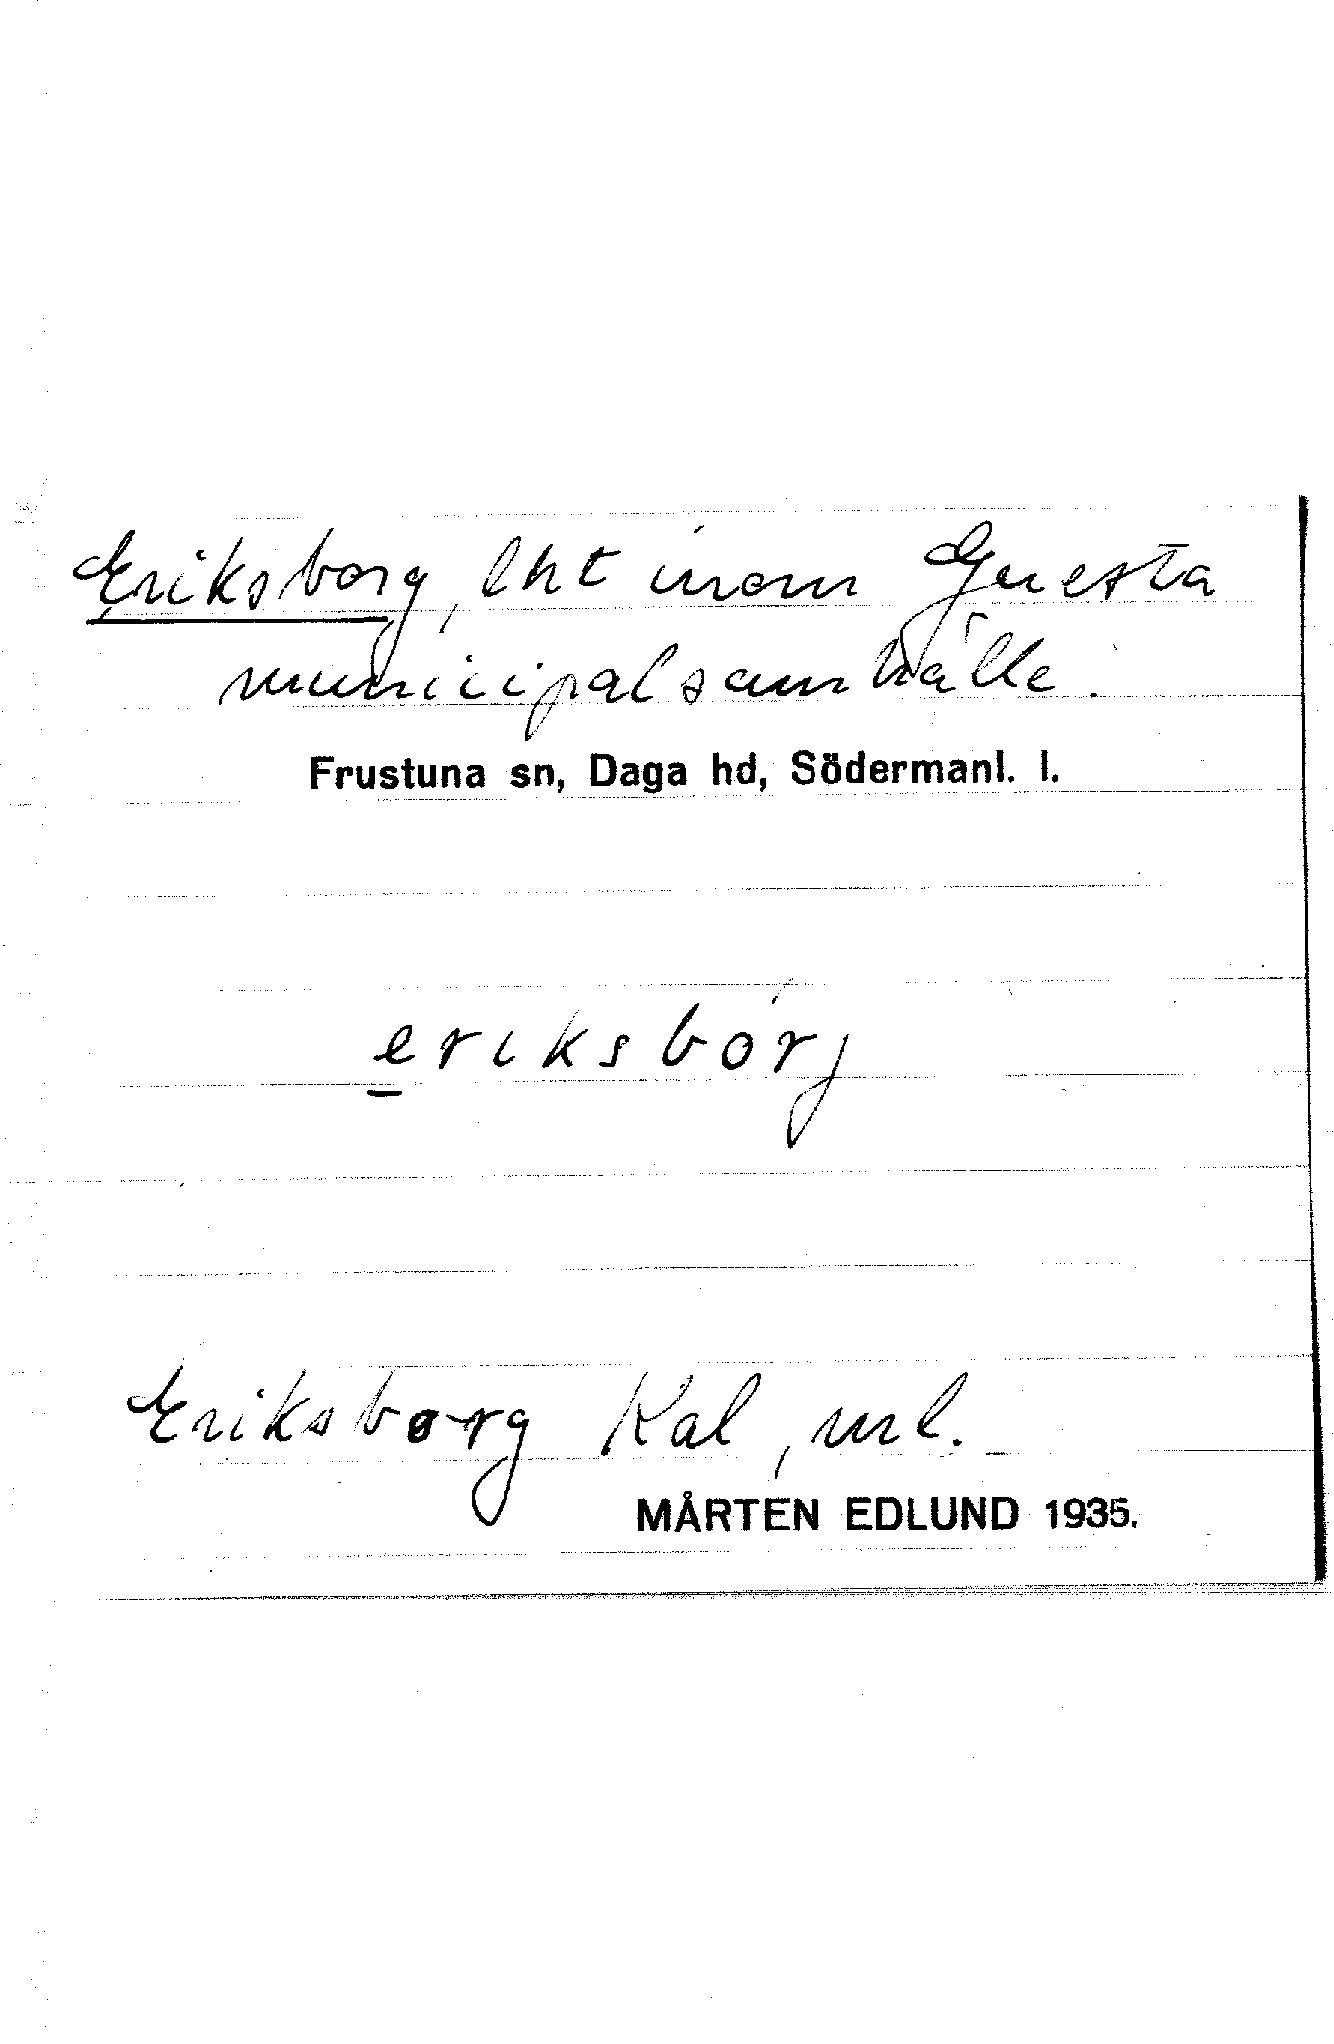 Eriksborg, lht inom Gnesta
municipalsamhälle.
Frustuna sn, Daga hd, Södermanl. l.
eriksbórj
Eriksborg Kal, ml.
MÅRTEN EDLUND 1935.